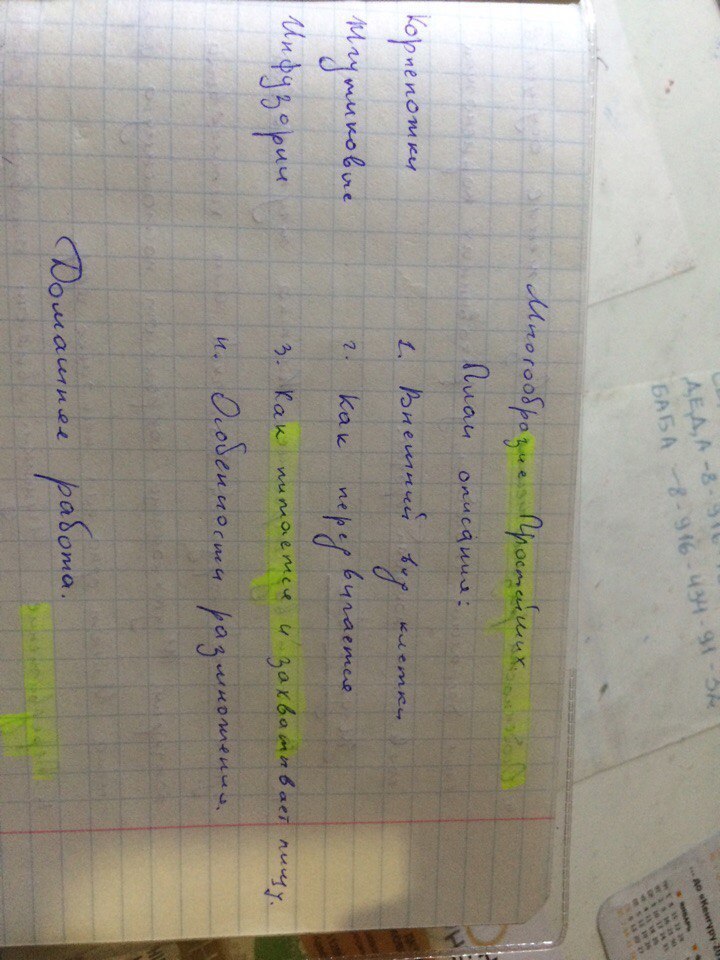 Многообразие Простейших.
План описания:
Корненожки
1. Внешний вид клетки
Жгутиковые
2. Как передвигается
Инфузории
3. Как питается и захватывает пищу.
4. Особенности размножения.
Домашняя работа.
ДЕДА -8-916
БАБА -8-916-434-91-
... до «Кенгуру